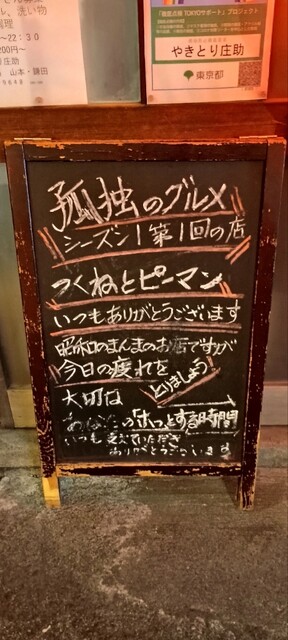 し、洗い物
～２２：３０
200円～
庄助
山本・鎌田
「TOKYOサポート」プロジェクト
やきとり庄助
東京都
孤独のグルメ
シーズン1第1回の店
つくねとピーマン
いつもありがとうございます
昭和のまんまのお店ですが
今日の疲れを
とりましょう！
大切な
あなたの「ホッとする時間」
いつも支えていただき
ありがとうございます